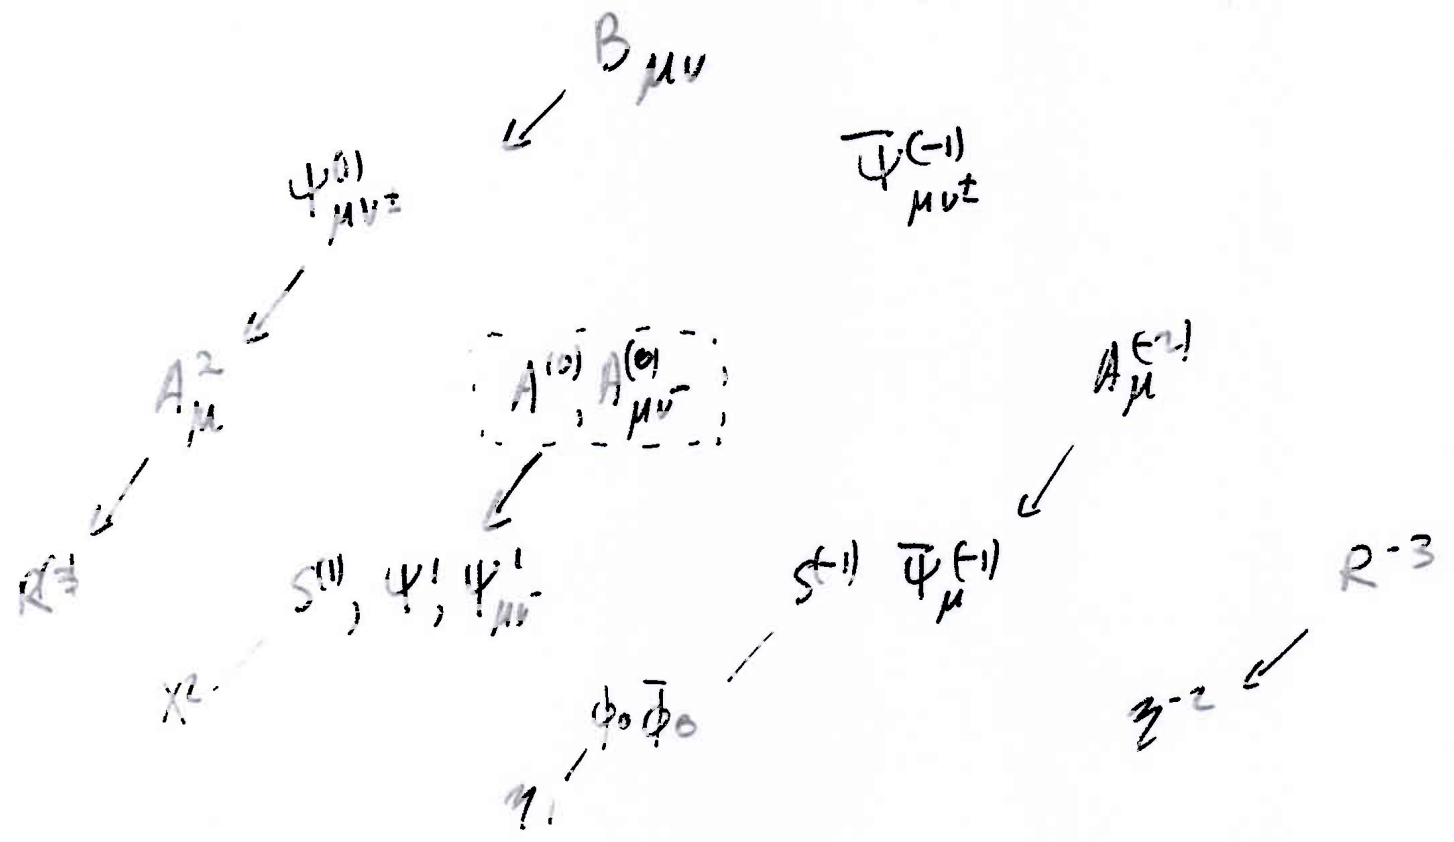 B_{μν}
Ψ^{(1)}_{μν±} \overline{Ψ}^{(-1)}_{μν±}
A^{2}_{μ} A^{(0)}, A^{(0)}_{μν^-} A^{(-2)}_{μ}
S^{(1)}, Ψ^{1}, Ψ^{1}_{μν^-} S^{(-1)} \overline{Ψ}^{(-1)}_{μ} R^{-3}
X^{2} φ_0 \overline{φ}_0 η^{-2}
η_1